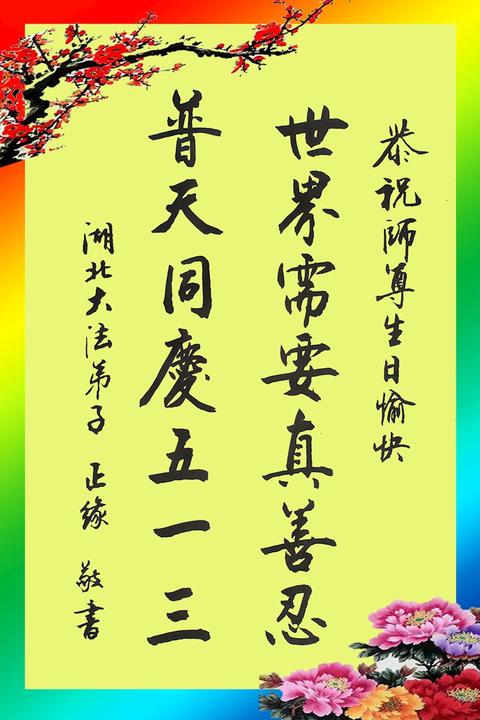 恭祝師尊生日愉快
世界需要真善忍
普天同慶五一三
湖北大法弟子 正缘 敬書